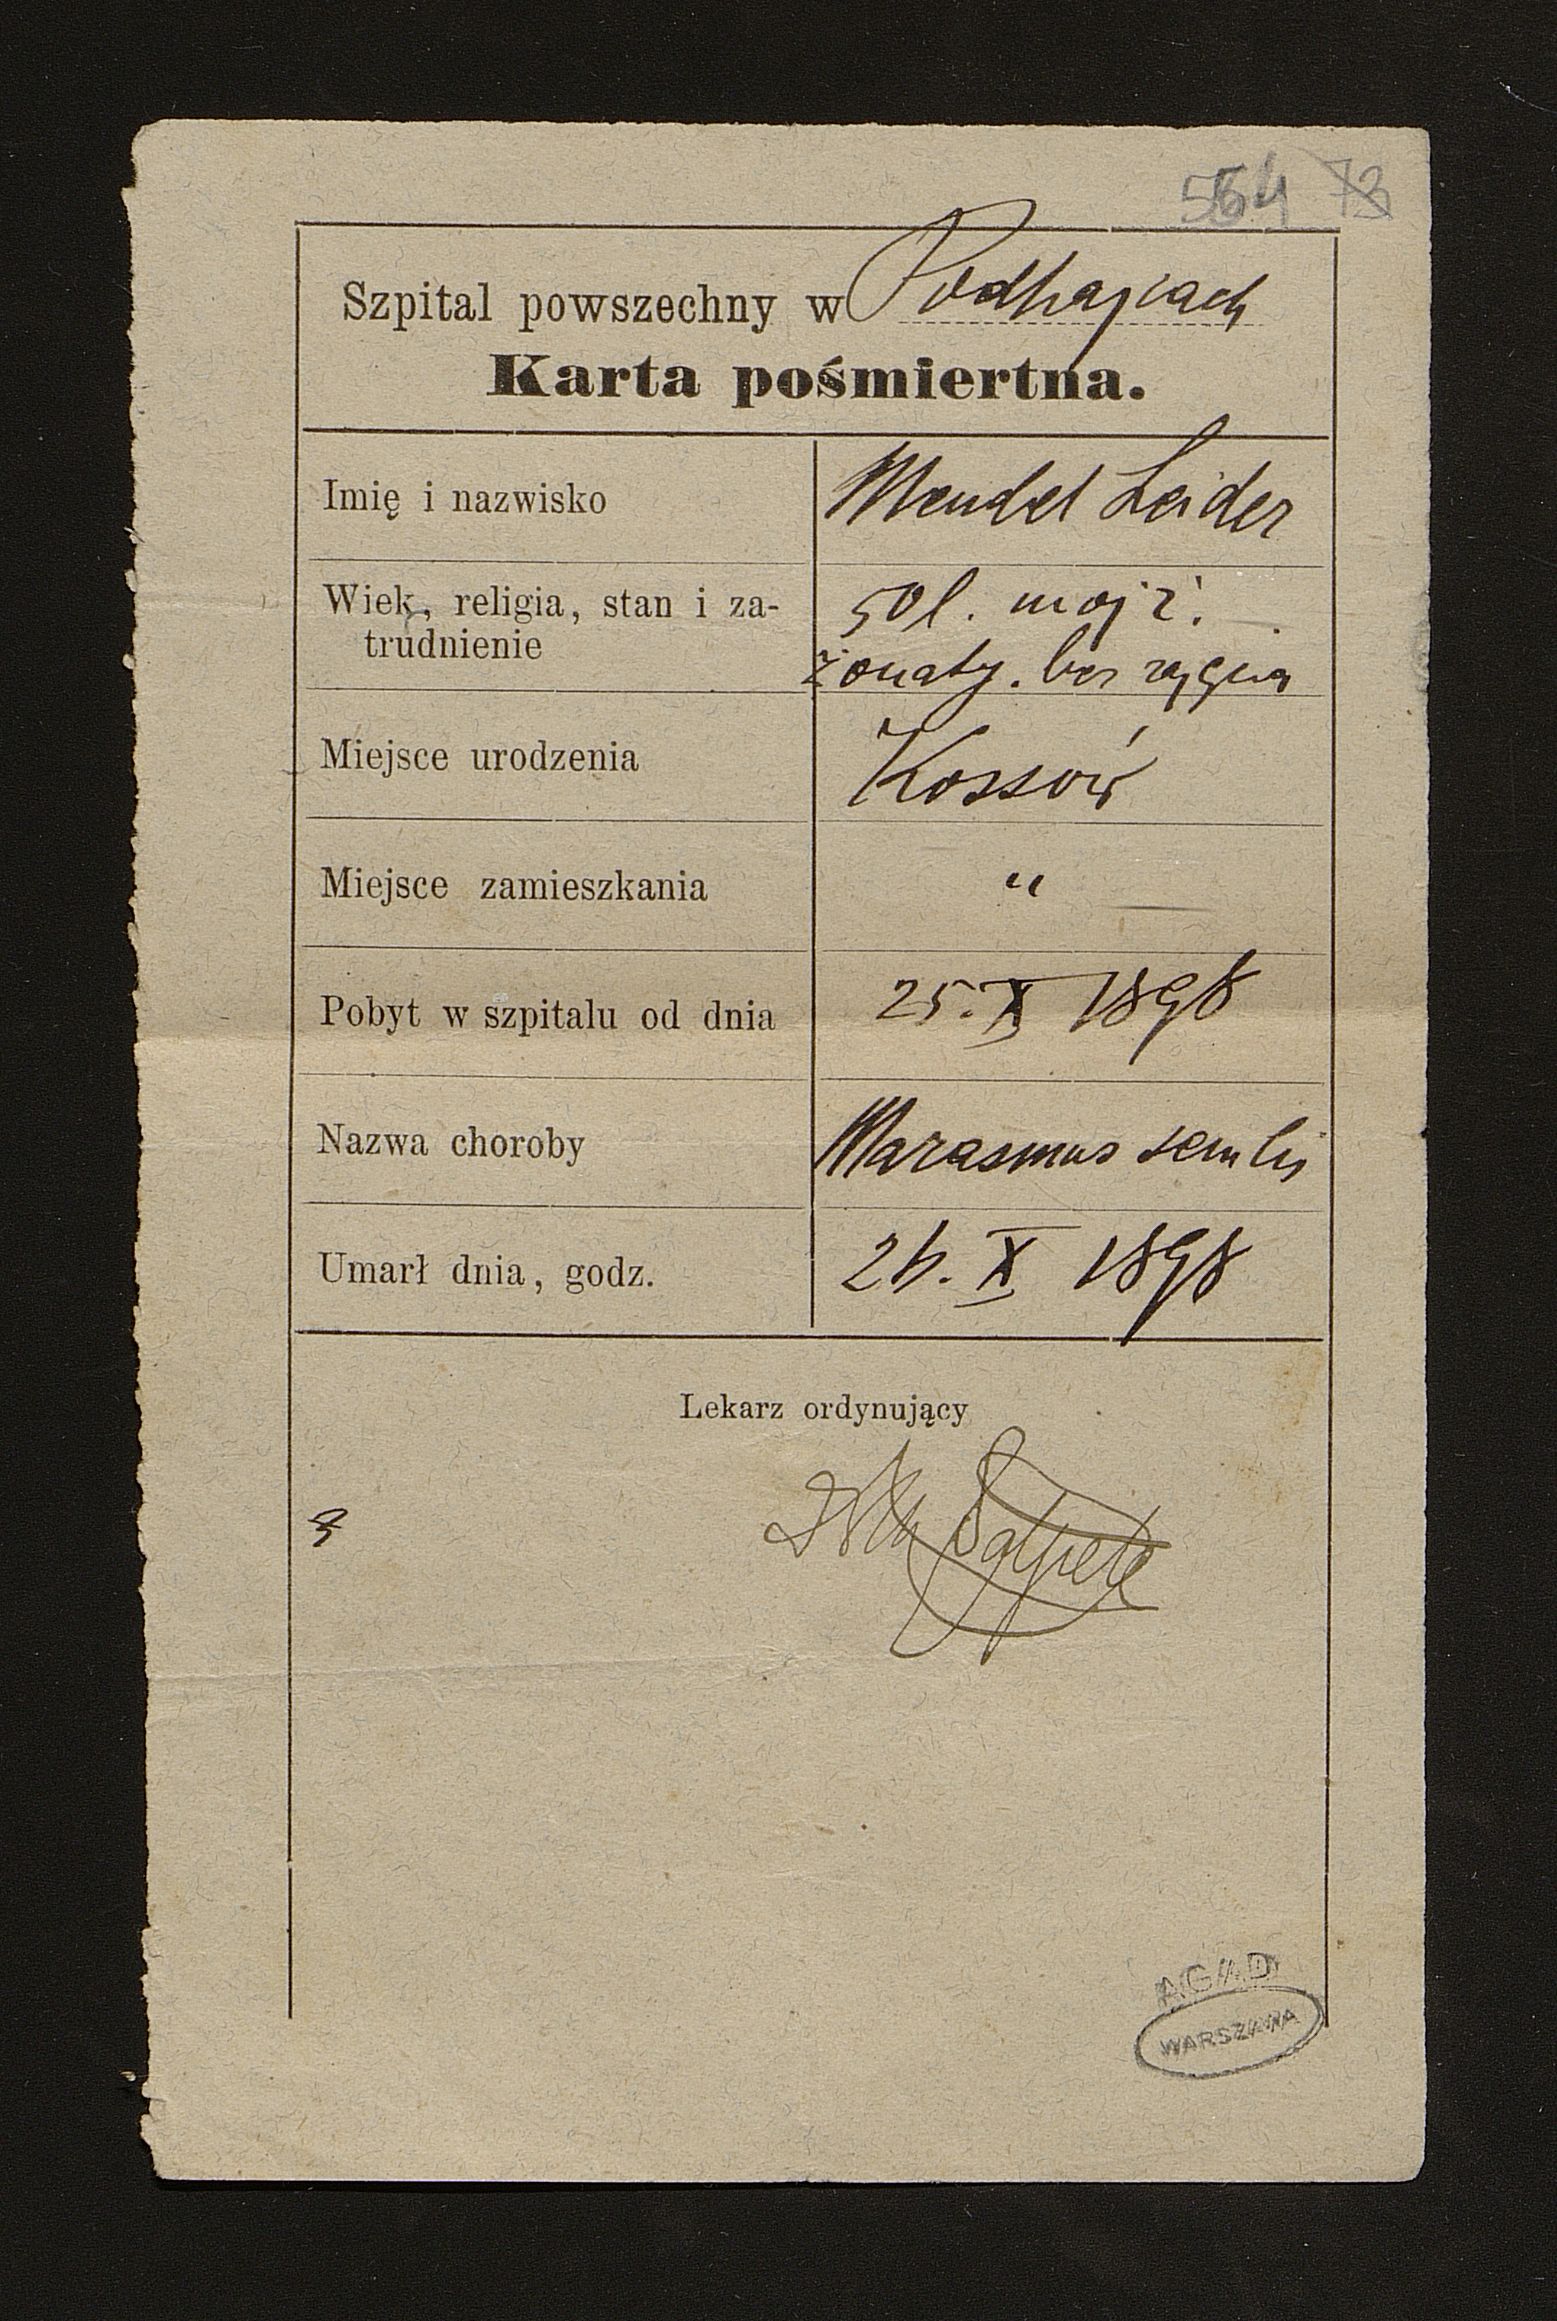 554 73
Szpital powszechny w Podhajcach
Karta pośmiertna.
Imię i nazwisko Mendel Leider
Wiek, religia, stan i za- 50 l. mojż.
trudnienie żonaty. bez zajęcia
Miejsce urodzenia Kossów
Miejsce zamieszkania "
Pobyt w szpitalu od dnia 25. X 1898
Nazwa choroby Marasmus senilis
Umarł dnia, godz. 26. X 1898
Lekarz ordynujący
AGAD
WARSZAWA